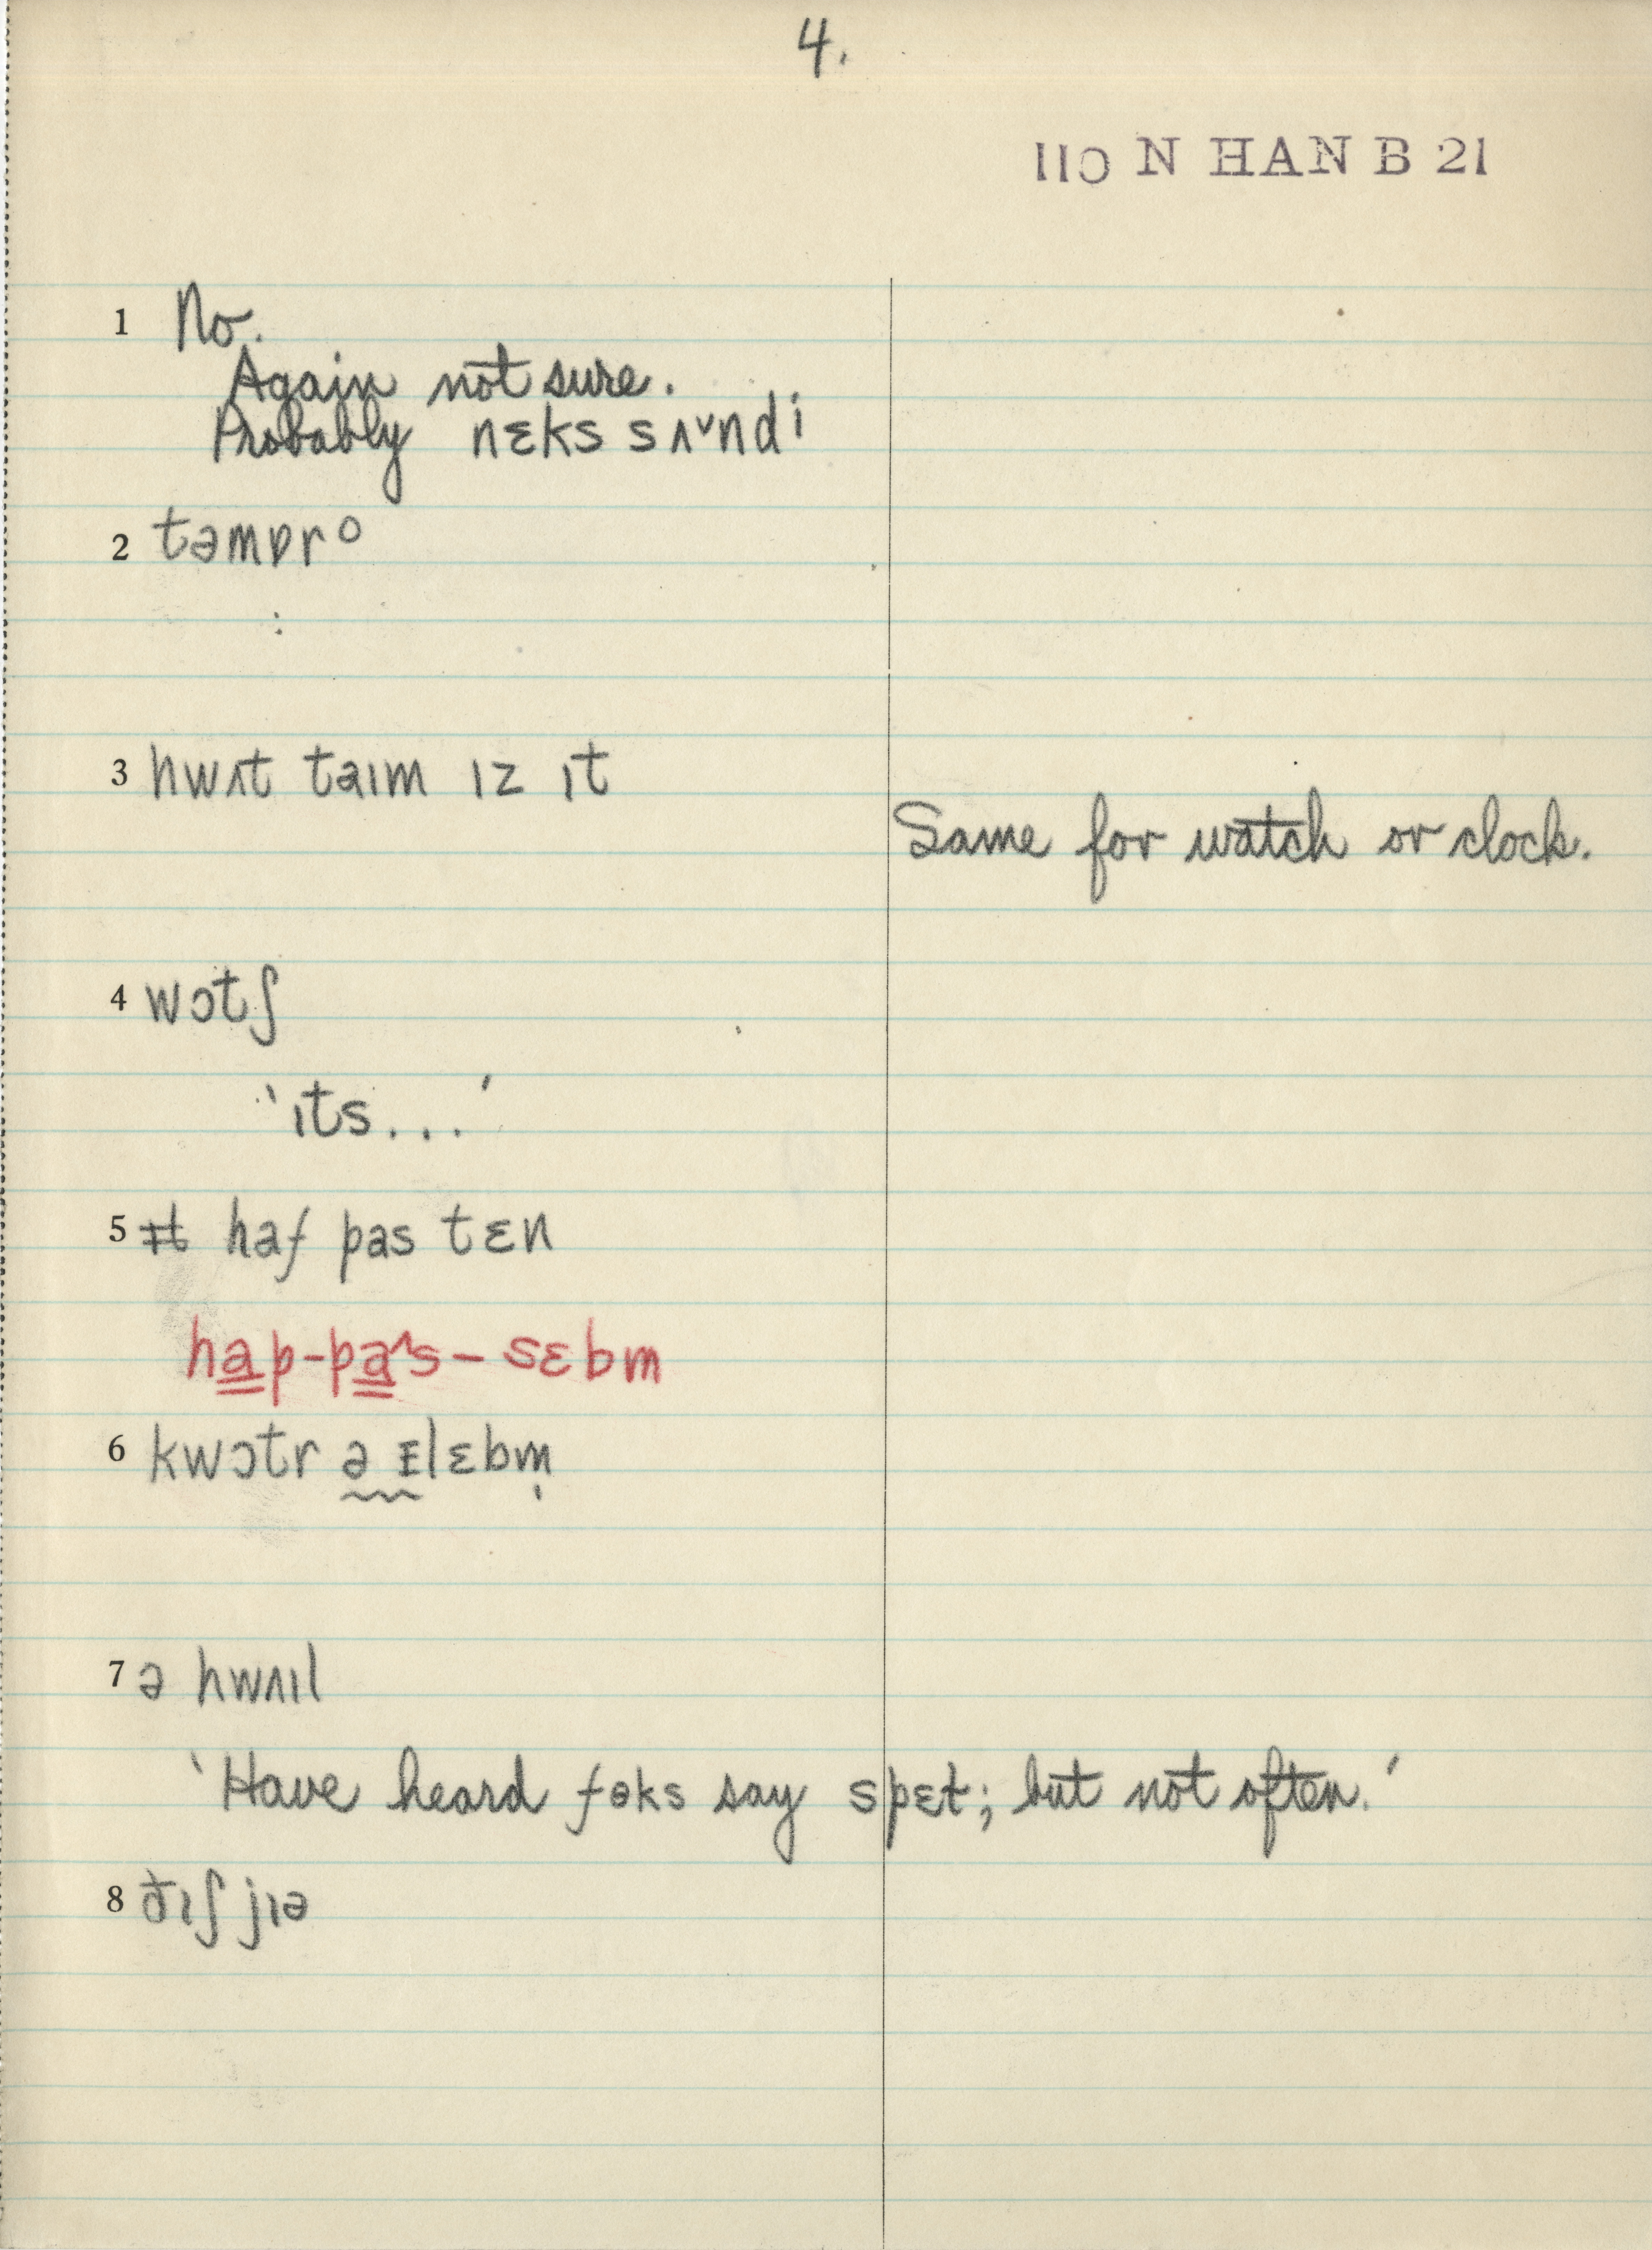 4.
110 N HAN B 21
1 No.
Again not sure.
Probably nɛks sʌ˅ndi
2 təmɒrᵒ
:
3 hwʌt taɪm ɪz ɪt
Same for watch or clock.
4 wɔtʃ
'ɪts...'
5 haf pas tɛn
hap-pa^s-sɛbm
6 kwɔtr ə ɪlɛbm̩
7 ə hwʌɪl
'Have heard foks say spɛt; but not often.'
8 ðɪʃ jɪə